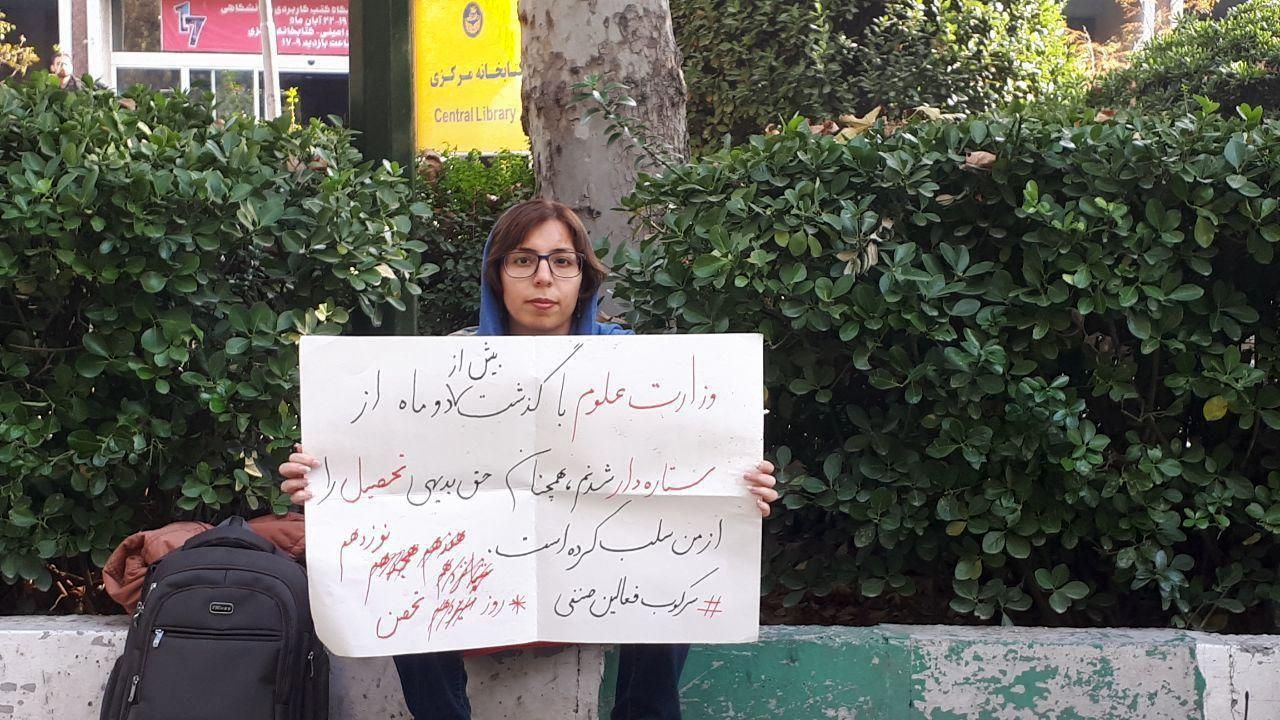 گاه کتب کاربردی دانشگاهی
۱۹-۲۲ آبان ماه
امینی-کتابخانه مرکزی
ساعت بازدید ۹-۱۷
17
کتابخانه مرکزی
Central Library
بیش از
وزارت علوم با گذشت دو ماه از
ستاره‌دار شدنم، همچنان حق بدیهی تحصیل را
از من سلب کرده است.
#سرکوب_فعالین_صنفی
هفدهم هجدهم نوزدهم
* روز تحصن